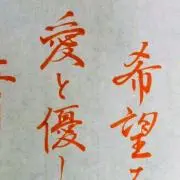 希望
愛と優し